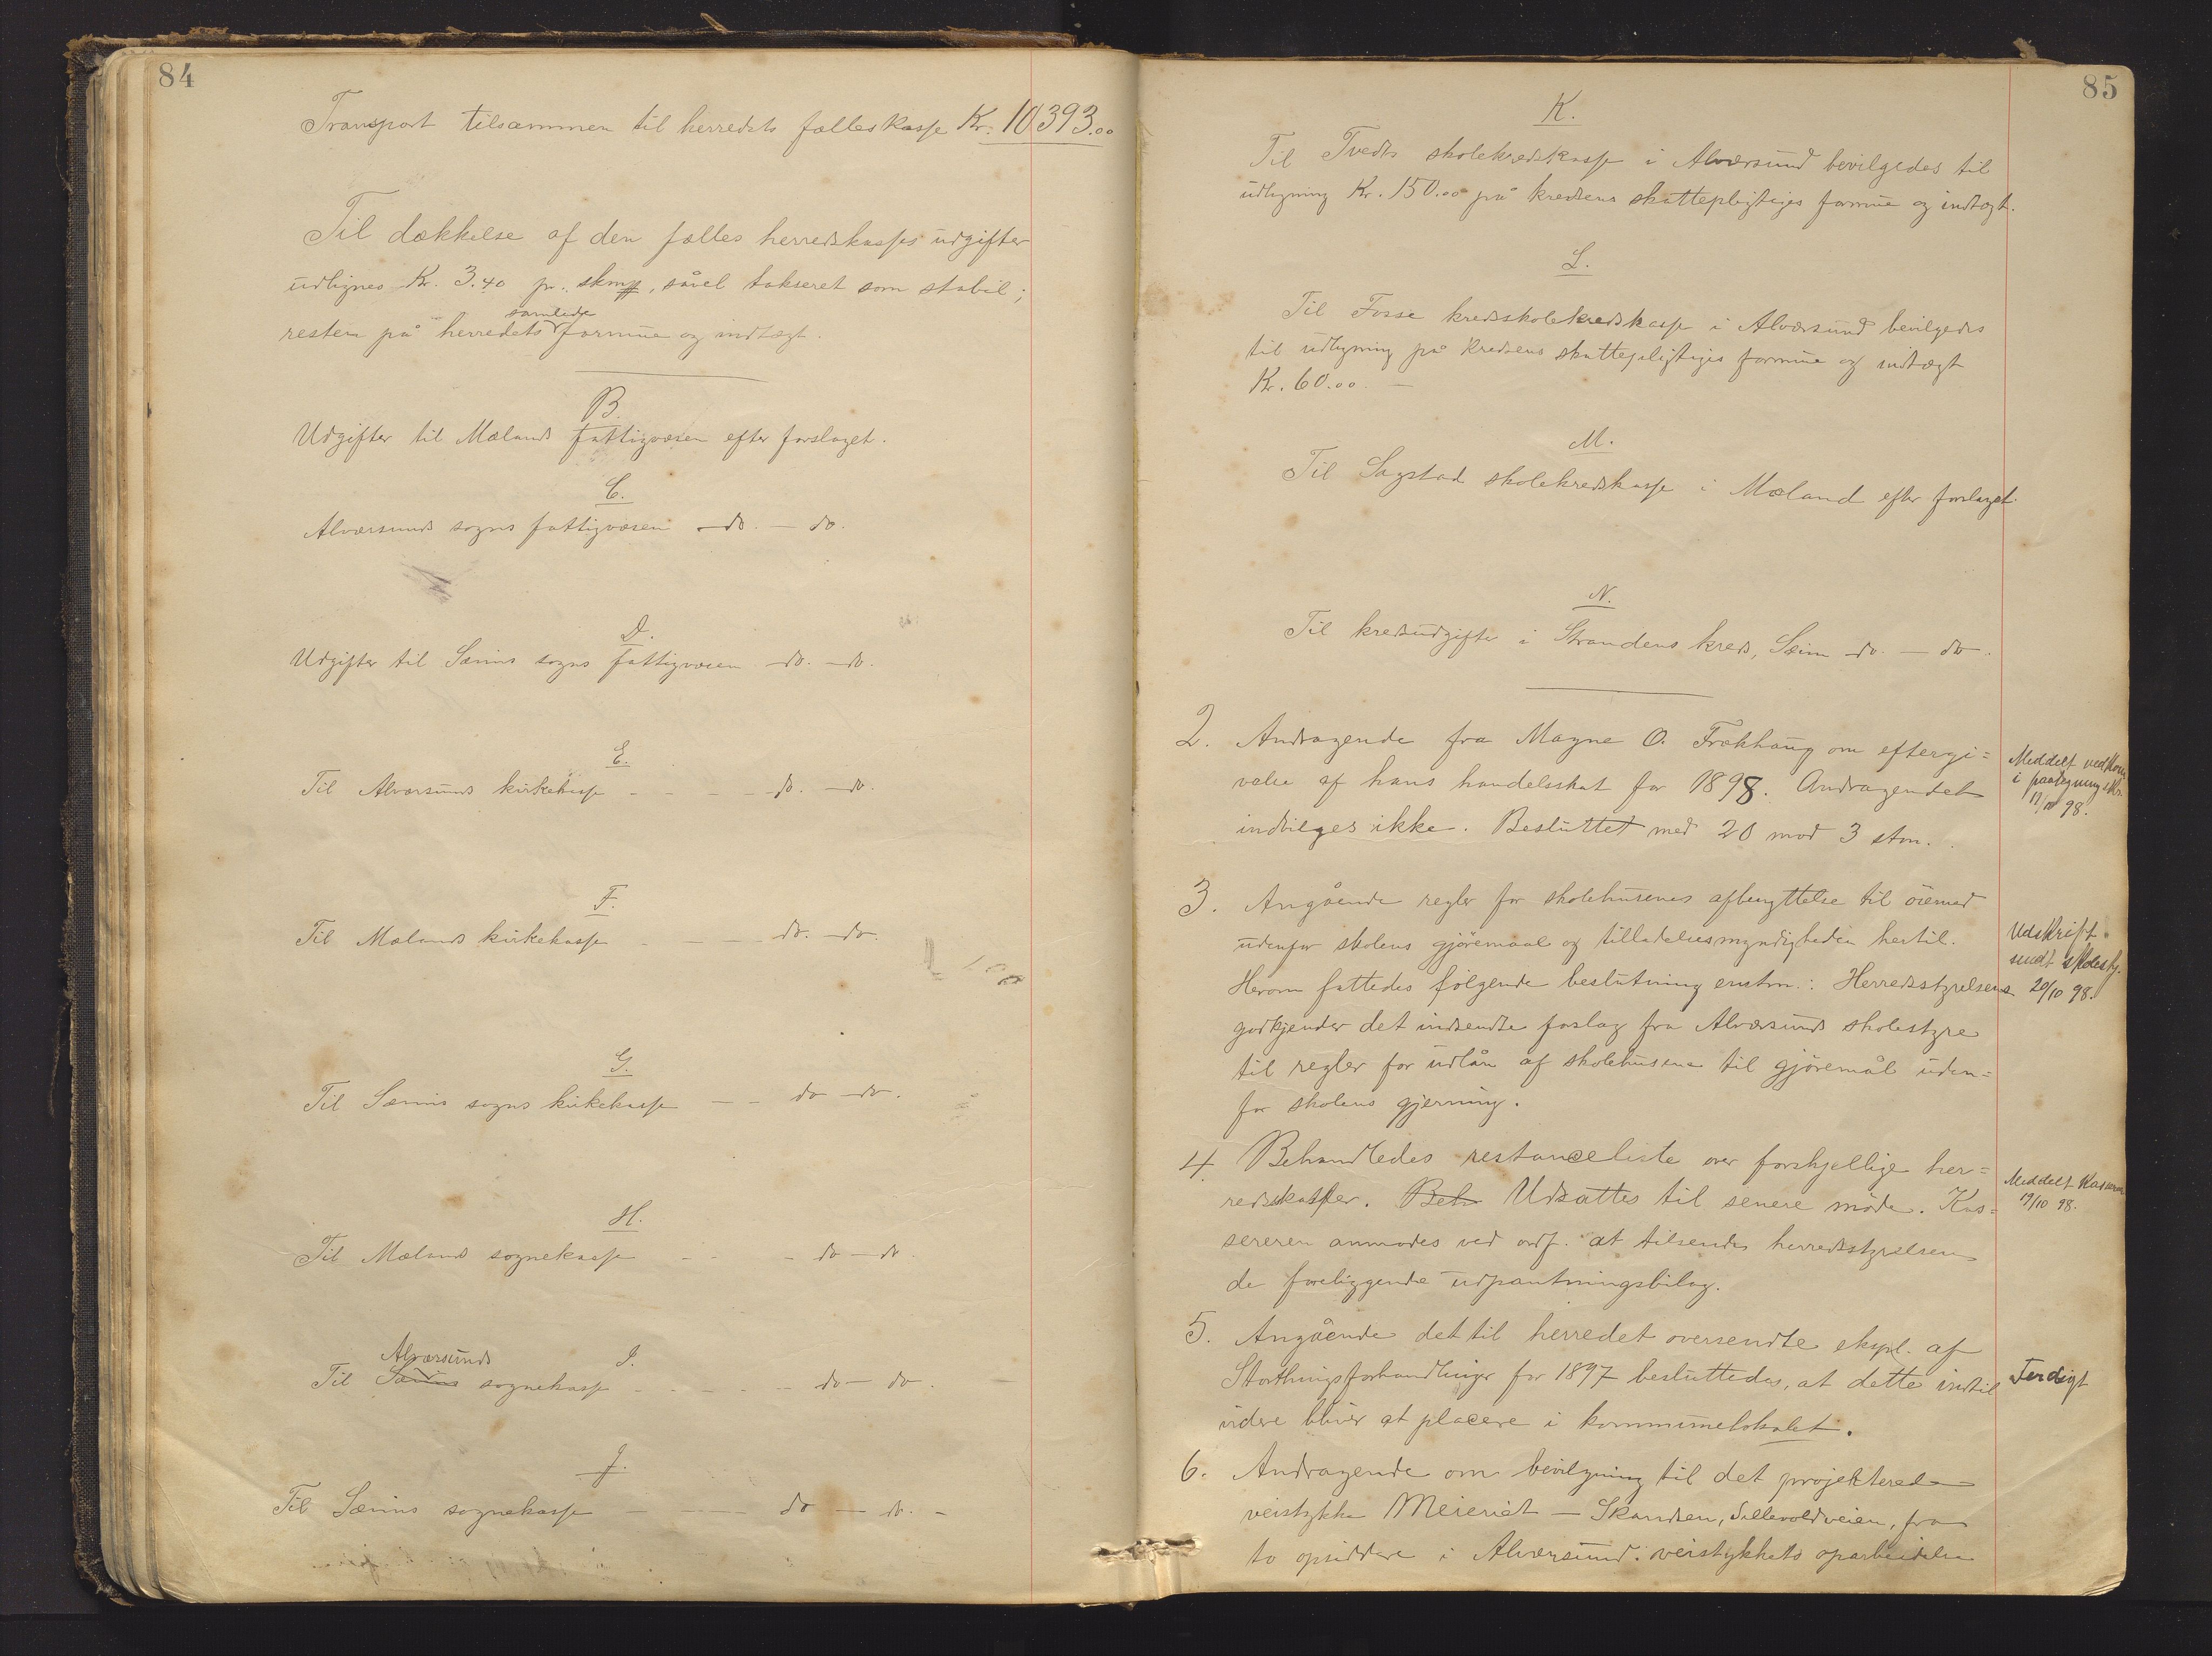 84
Transport tilsammen til herredets fælleskasse Kr. 10393.00
Til dækkelse af den fælles herredskasses udgifter
udlignes Kr. 3.40 pr. skm, såvel takseret som stabil;
samlede
resten på herredets formue og indtægt.
B.
Udgifter til Mælands fattigvæsen efter forslaget.
C.
Alværsunds sogns fattigvæsen - do. - do.
D.
Udgifter til Sæims sogns fattigvæsen - do. - do.
E.
Til Alværsunds kirkekasse - - - - do. - do.
F.
Til Mælands kirkekasse - - - do. - do.
G.
Til Sæims sogns kirkekasse - - do - do.
H.
Til Mælands sognekasse - - do - do.
Alværsunds
I.
Til Sæims sognekasse - - - - - do - do.
J.
Til Sæims sognekasse - - - - do - do. -
85
K.
Til Tvedts skolekredskasse i Alværsund bevilgedes til
udligning Kr. 150.00 på kredsens skattepligtiges formue og indtægt.
L.
Til Fosse kredsskolekredskasse i Alværsund bevilgedes
til udligning på kredsens skattepligtiges formue og indtægt
Kr. 60.00. -
M.
Til Sagstad skolekredskasse i Mæland efter forslaget.
N.
Til kredsudgifter i Strandens kreds, Sæim - do. - do.
2. Andragende fra Magne O. Frækhaug om eftergi=
velse af hans handelsskat for 1898. Andragendet
indvilges ikke. Besluttet med 20 mod 3 stm.
Meddelt vedkom
i paategning
98.
3. Angående regler for skolehusenes afbenyttelse til öiemed
udenfor skolens gjöremaal og tilladelsesmyndigheden hertil.
Herom fattedes fölgende beslutning enstm.: Herredsstyrelsens
godkjender det indsendte forslag fra Alværsunds skolestyre
til regler for udlån af skolehusene til gjöremål uden=
for skolens gjerning.
Udskrift
sendt skolesty.
20/10 98.
4. Behandledes restanceliste over forskjellige her=
redsskatter. Beh Udsattes til senere möde. Kas=
sereren anmodes ved ordf. at tilsende herredsstyrelsen
de foreliggende udpantningsbilag.
Meddelt Kasserer
19/10 98.
5. Angående det til herredet oversendte ekspl. af
Storthingsforhandlinger for 1897 besluttedes, at dette indtil
videre bliver at placere i kommunelokalet.
Ferdigt
6. Andragende om bevilgning til det projekterede
veistykke Meieriet - Skandsen, Sellevoldveien, fra
to opsiddere i Alværsund. veistykkets oparbeidelse